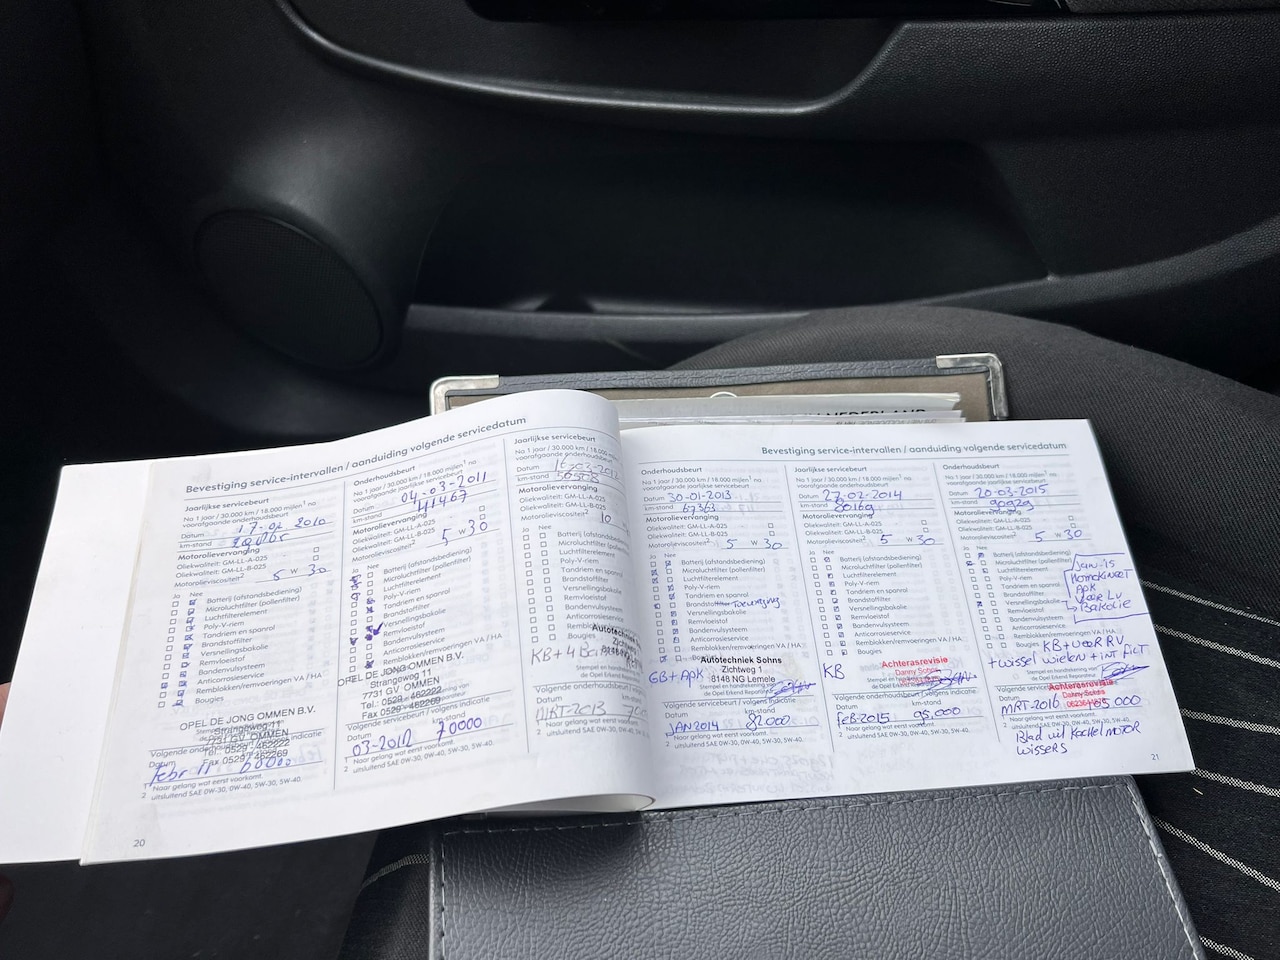 Bevestiging service-intervallen / aanduiding volgende servicedatum
Jaarlijkse servicebeurt
Na 1 jaar / 30.000 km / 18.000 mijlen¹ na
voorafgaande onderhoudsbeurt
Datum 17-02 2010
km-stand
Motorolievervanging
Oliekwaliteit: GM-LL-A-025
Oliekwaliteit: GM-LL-B-025
Motorolieviscositeit² 5 W 30
Ja Nee
Batterij (afstandsbediening)
Microluchtfilter (pollenfilter)
Luchtfilterelement
Poly-V-riem
Tandriem en spanrol
Brandstoffilter
Versnellingsbakolie
Remvloeistof
Bandenvulsysteem
Anticorrosieservice
Remblokken/remvoeringen VA / HA
Bougies
OPEL DE JONG OMMEN B.V.
Strangeweg 11
7731 GV OMMEN
Tel. 0529 - 462222
Fax 0529 / 462269
Volgende
Datum
febr 11 60000
1 Naar gelang wat eerst voorkomt.
2 uitsluitend SAE 0W-30, 0W-40, 5W-30, 5W-40.
20
Onderhoudsbeurt
Na 1 jaar / 30.000 km / 18.000 mijlen¹ na
voorafgaande jaarlijkse servicebeurt
Datum 04-03-2011
km-stand 41467
Motorolievervanging
Oliekwaliteit: GM-LL-A-025
Oliekwaliteit: GM-LL-B-025
Motorolieviscositeit² 5 W 30
Ja Nee
Batterij (afstandsbediening)
Microluchtfilter (pollenfilter)
Luchtfilterelement
Poly-V-riem
Tandriem en spanrol
Brandstoffilter
Versnellingsbakolie
Remvloeistof
Bandenvulsysteem
Anticorrosieservice
Remblokken/remvoeringen VA / HA
Bougies
OPEL DE JONG OMMEN B.V.
Strangeweg 11
7731 GV OMMEN
Tel.: 0529 - 462222
Fax 0529 - 462269
Datum km-stand
03-2012 70000
1 Naar gelang wat eerst voorkomt.
2 uitsluitend SAE 0W-30, 0W-40, 5W-30, 5W-40.
Jaarlijkse servicebeurt
Na 1 jaar / 30.000 km / 18.000 mijlen¹ na
voorafgaande onderhoudsbeurt
Datum
km-stand
Motorolievervanging
Oliekwaliteit: GM-LL-A-025
Oliekwaliteit: GM-LL-B-025
Motorolieviscositeit² 10
Ja Nee
Batterij
Microluchtfilter
Luchtfilterelement
Poly-V-riem
Tandriem en spanrol
Brandstoffilter
Versnellingsbakolie
Remvloeistof
Bandenvulsysteem
Anticorrosieservice
Bougies
KB + 4
Volgende servicebeurt
Datum
MRT-2013
1 Naar gelang wat eerst voorkomt.
2 uitsluitend SAE 0W-30, 0W-40, 5W-30,
NEDERLAND
Bevestiging service-intervallen / aanduiding volgende servicedatum
Onderhoudsbeurt
Na 1 jaar / 30.000 km / 18.000 mijlen¹ na
voorafgaande jaarlijkse servicebeurt
Datum 30-01-2013
km-stand 67363
Motorolievervanging
Oliekwaliteit: GM-LL-A-025
Oliekwaliteit: GM-LL-B-025
Motorolieviscositeit² 5 W 30
Ja Nee
Batterij (afstandsbediening)
Microluchtfilter (pollenfilter)
Luchtfilterelement
Poly-V-riem
Tandriem en spanrol
Versnellingsbakolie
Remvloeistof
Bandenvulsysteem
Anticorrosieservice
Remblokken/remvoeringen VA / HA
Bougies
GB + APK
Autotechniek Sohns
Zichtweg 1
8148 NG Lemele
Volgende servicebeurt / volgens indicatie
Datum km-stand
JAN 2014 82000
1 Naar gelang wat eerst voorkomt.
2 uitsluitend SAE 0W-30, 0W-40, 5W-30, 5W-40.
Jaarlijkse servicebeurt
Na 1 jaar / 30.000 km / 18.000 mijlen¹ na
voorafgaande onderhoudsbeurt
Datum 27-02-2014
km-stand 80169
Motorolievervanging
Oliekwaliteit: GM-LL-A-025
Oliekwaliteit: GM-LL-B-025
Motorolieviscositeit² 5 W 30
Ja Nee
Batterij (afstandsbediening)
Microluchtfilter (pollenfilter)
Luchtfilterelement
Poly-V-riem
Tandriem en spanrol
Brandstoffilter
Versnellingsbakolie
Remvloeistof
Bandenvulsysteem
Anticorrosieservice
Remblokken/remvoeringen VA / HA
Bougies
KB
Achterasrevisie
Danny Sohns
Stempel en handtekening van
de Opel Erkend Reparateur
Volgende servicebeurt / volgens indicatie
Datum km-stand
Feb-2015 95.000
1 Naar gelang wat eerst voorkomt.
2 uitsluitend SAE 0W-30, 0W-40, 5W-30, 5W-40.
Onderhoudsbeurt
Na 1 jaar / 30.000 km / 18.000 mijlen¹ na
voorafgaande jaarlijkse servicebeurt
Datum 20-03-2015
km-stand 90929
Motorolievervanging
Oliekwaliteit: GM-LL-A-025
Oliekwaliteit: GM-LL-B-025
Motorolieviscositeit² 5 W 30
Ja Nee
Batterij (afstandsbediening)
Microluchtfilter (pollenfilter)
Luchtfilterelement
Poly-V-riem
Tandriem en spanrol
Brandstoffilter
Versnellingsbakolie
Remvloeistof
Bandenvulsysteem
Anticorrosieservice
Remblokken/remvoeringen VA / HA
Bougies
Jan-15
Homokineet
APK
Veer LV
Bakolie
KB + veer RV
+ wissel wielen + int
Achterasrevisie
Danny Sohns
Datum
MRT-2016 105000
1 Naar gelang wat eerst voorkomt.
2 uitsluitend SAE 0W-30, 0W-40, 5W-30, 5W-40.
Blad uit Kachelmotor
wissers
21